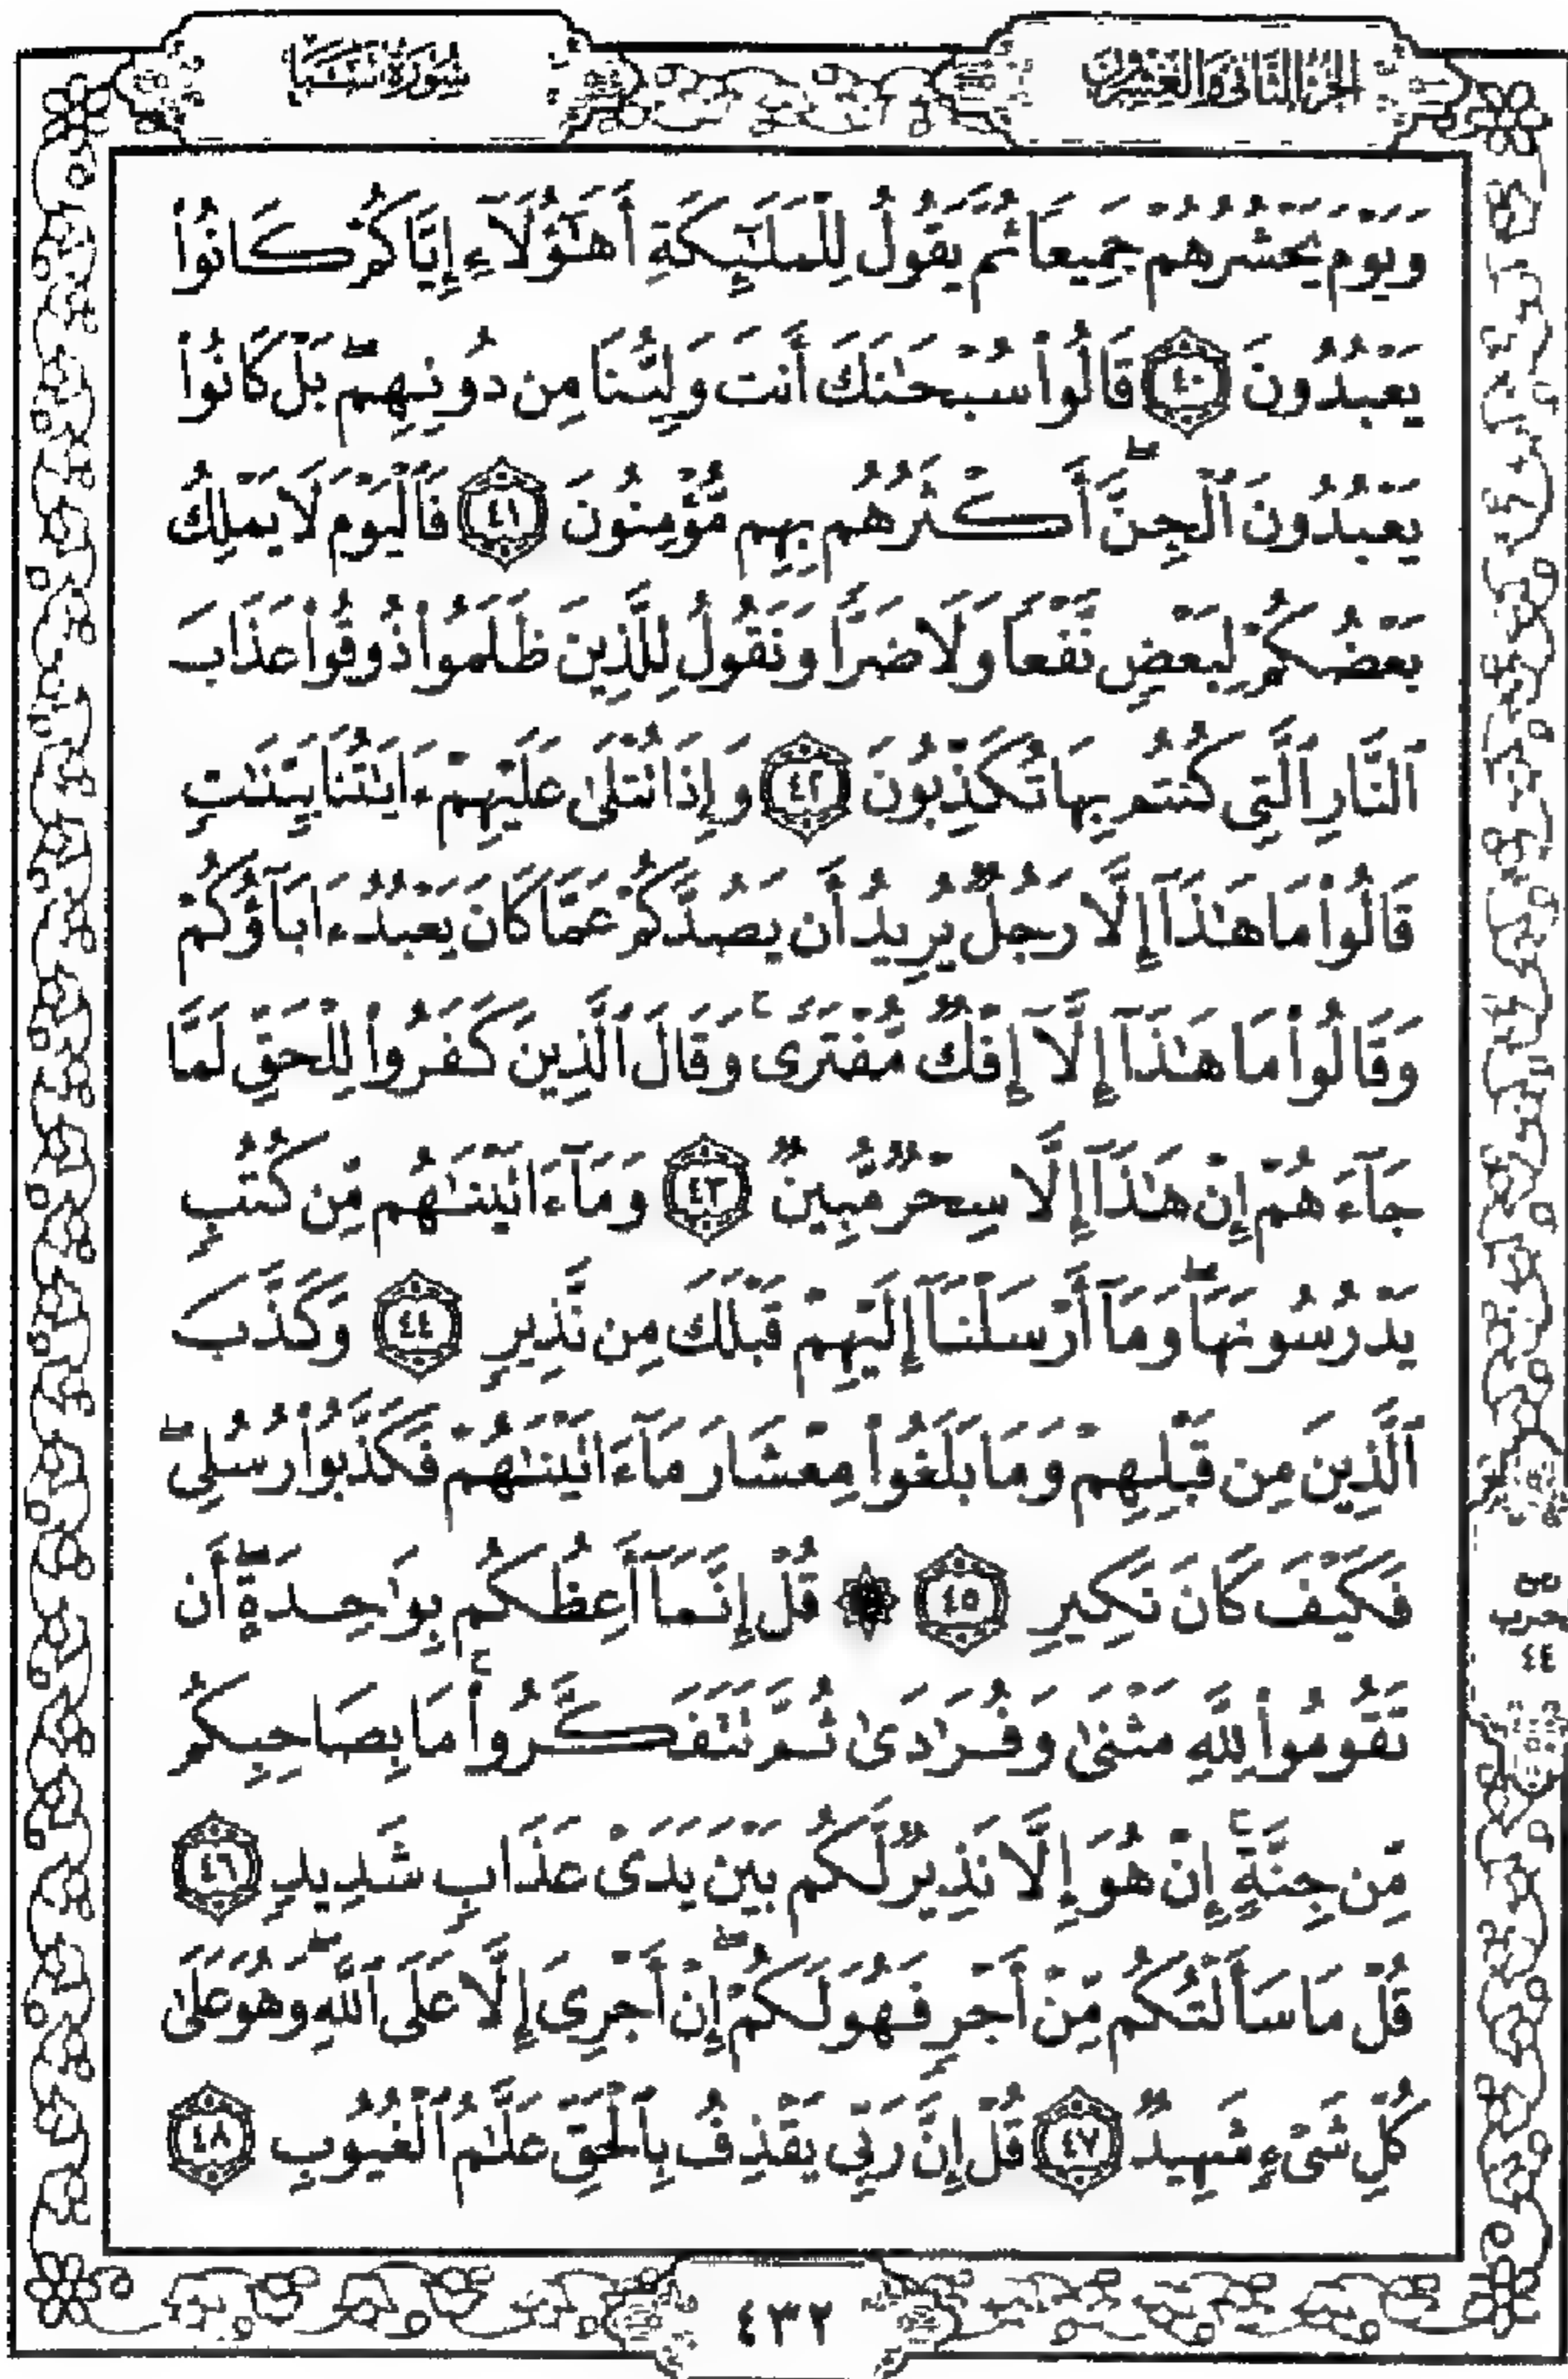 الجزء الثاني والعشرون
سورة سبأ
وَيَوْمَ يَحْشُرُهُمْ جَمِيعًا ثُمَّ يَقُولُ لِلْمَلَـٰٓئِكَةِ أَهَـٰٓؤُلَآءِ إِيَّاكُمْ كَانُوا۟
يَعْبُدُونَ ٤٠ قَالُوا۟ سُبْحَـٰنَكَ أَنتَ وَلِيُّنَا مِن دُونِهِم ۖ بَلْ كَانُوا۟
يَعْبُدُونَ ٱلْجِنَّ ۖ أَكْثَرُهُم بِهِم مُّؤْمِنُونَ ٤١ فَٱلْيَوْمَ لَا يَمْلِكُ
بَعْضُكُمْ لِبَعْضٍ نَّفْعًا وَلَا ضَرًّا وَنَقُولُ لِلَّذِينَ ظَلَمُوا۟ ذُوقُوا۟ عَذَابَ
ٱلنَّارِ ٱلَّتِى كُنتُم بِهَا تُكَذِّبُونَ ٤٢ وَإِذَا تُتْلَىٰ عَلَيْهِمْ ءَايَـٰتُنَا بَيِّنَـٰتٍ
قَالُوا۟ مَا هَـٰذَآ إِلَّا رَجُلٌ يُرِيدُ أَن يَصُدَّكُمْ عَمَّا كَانَ يَعْبُدُ ءَابَآؤُكُمْ
وَقَالُوا۟ مَا هَـٰذَآ إِلَّآ إِفْكٌ مُّفْتَرًى ۚ وَقَالَ ٱلَّذِينَ كَفَرُوا۟ لِلْحَقِّ لَمَّا
جَآءَهُمْ إِنْ هَـٰذَآ إِلَّا سِحْرٌ مُّبِينٌ ٤٣ وَمَآ ءَاتَيْنَـٰهُم مِّن كُتُبٍ
يَدْرُسُونَهَا ۖ وَمَآ أَرْسَلْنَآ إِلَيْهِمْ قَبْلَكَ مِن نَّذِيرٍ ٤٤ وَكَذَّبَ
ٱلَّذِينَ مِن قَبْلِهِمْ وَمَا بَلَغُوا۟ مِعْشَارَ مَآ ءَاتَيْنَـٰهُمْ فَكَذَّبُوا۟ رُسُلِى ۖ
فَكَيْفَ كَانَ نَكِيرِ ٤٥ ۞ قُلْ إِنَّمَآ أَعِظُكُم بِوَٰحِدَةٍ ۖ أَن
تَقُومُوا۟ لِلَّهِ مَثْنَىٰ وَفُرَٰدَىٰ ثُمَّ تَتَفَكَّرُوا۟ ۚ مَا بِصَاحِبِكُم
مِّن جِنَّةٍ ۚ إِنْ هُوَ إِلَّا نَذِيرٌ لَّكُم بَيْنَ يَدَىْ عَذَابٍ شَدِيدٍ ٤٦
قُلْ مَا سَأَلْتُكُم مِّنْ أَجْرٍ فَهُوَ لَكُمْ ۖ إِنْ أَجْرِىَ إِلَّا عَلَى ٱللَّهِ ۖ وَهُوَ عَلَىٰ
كُلِّ شَىْءٍ شَهِيدٌ ٤٧ قُلْ إِنَّ رَبِّى يَقْذِفُ بِٱلْحَقِّ عَلَّـٰمُ ٱلْغُيُوبِ ٤٨
حزب
٤٤
٤٣٢